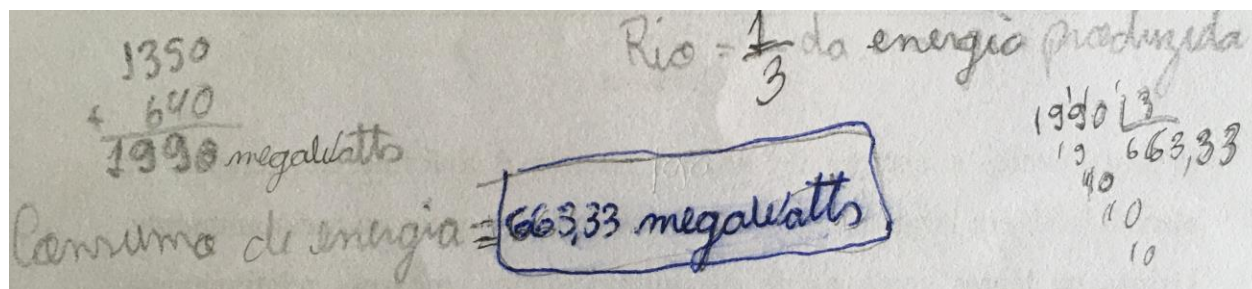 1350
+ 640
1990 megawatts
Rio = 1/3 da energia produzida
1990 | 3
19 663,33
10
10
10
Consumo de energia = 663,33 megawatts